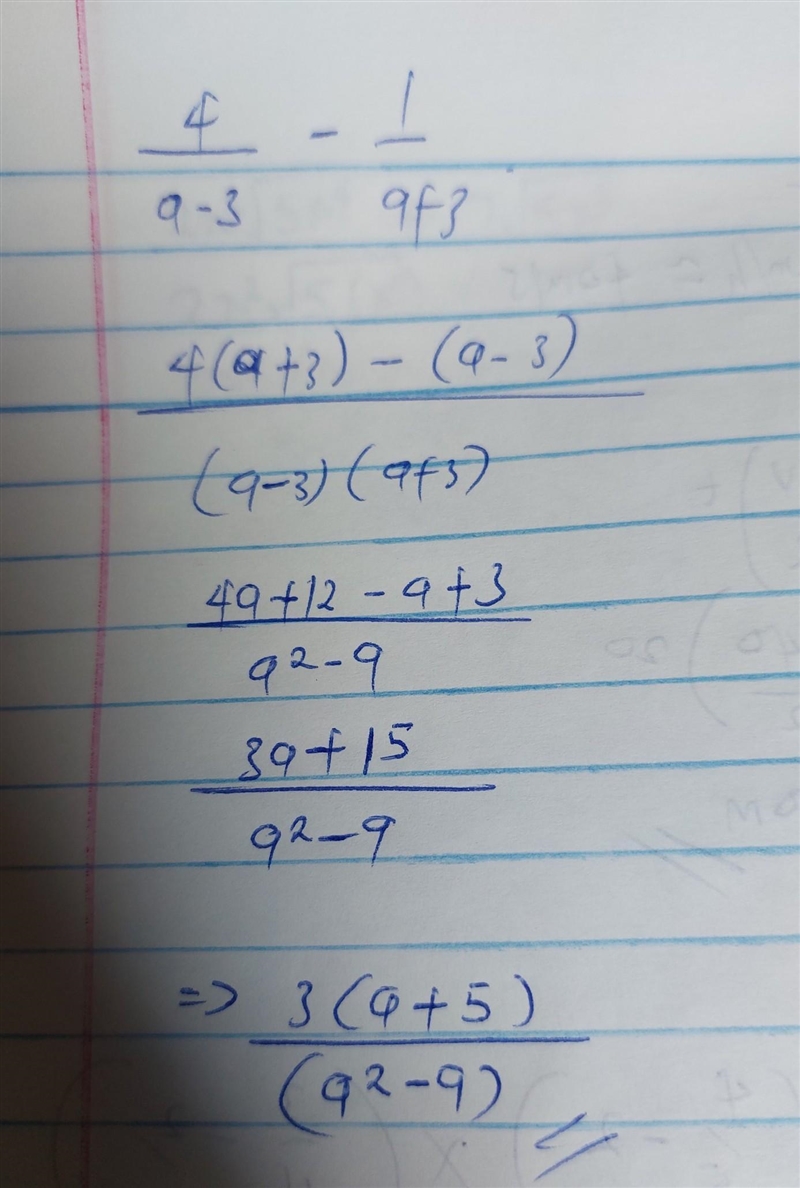 4/(a-3) - 1/(a+3)
(4(a+3) - (a-3))/((a-3)(a+3))
(4a+12-a+3)/(a²-9)
(3a+15)/(a²-9)
=> 3(a+5)/(a²-9)